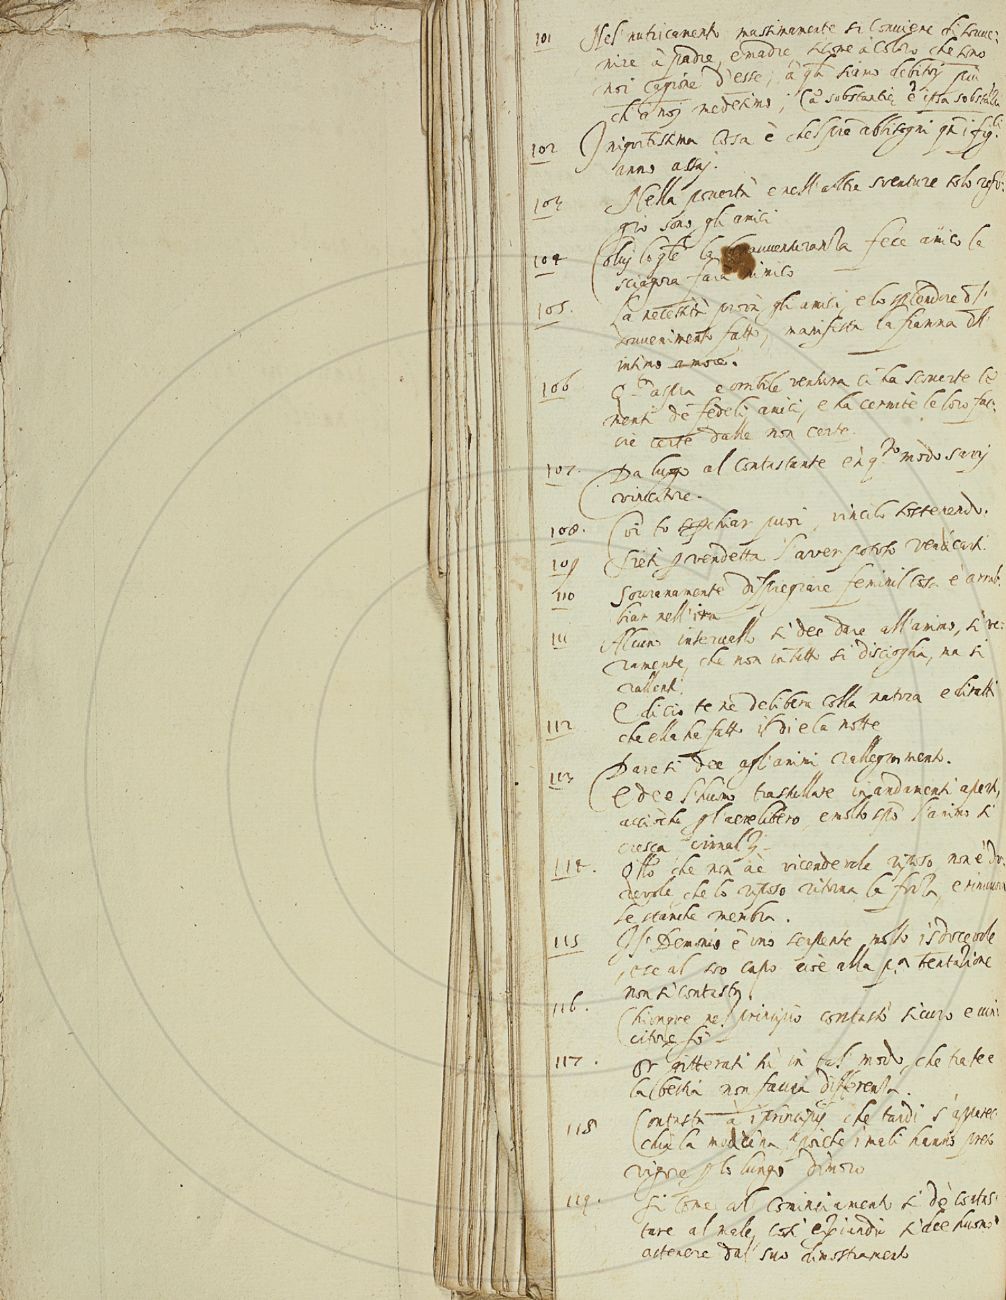 101 Nel nutricamento massimamente si conviene di sovve:
nire à Padre, e madre sicome à coloro che sono
noi cagione d'esse, à q̃li siamo debitori più
ch'à noi medesimi,
102 Iniquitissima cosa è che
anno assaj.
103 Nella povertà e nell'altre sventure solo refu:
gio sono gli amici
104 Colui lo q̃le la buonavventuranza fece amico la
sciagura farà nimico
105. La necessità prova gli amici, e lo splendore d'l
sovvenimento fatto, manifesta la fiamma d'll
intimo amore.
106 aspra e orribile ventura ci ha scoverte le
menti de fedeli amici, e ha cernite le loro fac:
cie certe dalle non certe.
107. Da luogo al contastante e in q.to modo saraj
vincitore.
108. Cui tu soperchiar puoi, vincilo sostenendo.
109 Sieti p vendetta l'aver potuto vendicarti.
110 Sovranamente dispregiare feminil cosa è arrab:
biar nell'ira
111 Alcuno intervallo si dee dare all'animo, sì ve:
ramente, che non in tutto si discioglia, ma si
rallenti.
112 E di ciò te ne delibera colla natura e diratti
che ella ha fatto il di e la notte
113 Dare si dee agl'animi rallegramento.
E dee l'huomo trastullare in andamenti aperti,
acciochè p l'aere libero, e molto l'animo si
cresca
114. Q'llo che non à vicendevole riposo non è du:
revole, che lo riposo ritorna la forza, e rinnuova
le stanche membra.
115 Il Demonio è uno serpente molto isdrucevole
, e se al suo capo cioè alla p.a tentazione
non si contasta,
116. Chiunque nel principio contastò sicuro e vin:
citore fò
117. Or gitterati hi in tal modo, che tra te e
la bestia non faccia differenza
118 Contasta à i principij che tardi s'apparec:
chia la medicina, poiche i mali hanno preso
vigore p lo lungo dimoro
119. Si come al cominciamento si dè contas:
tare al male, così eziandio si dee huomo
astenere dal suo dimostramento